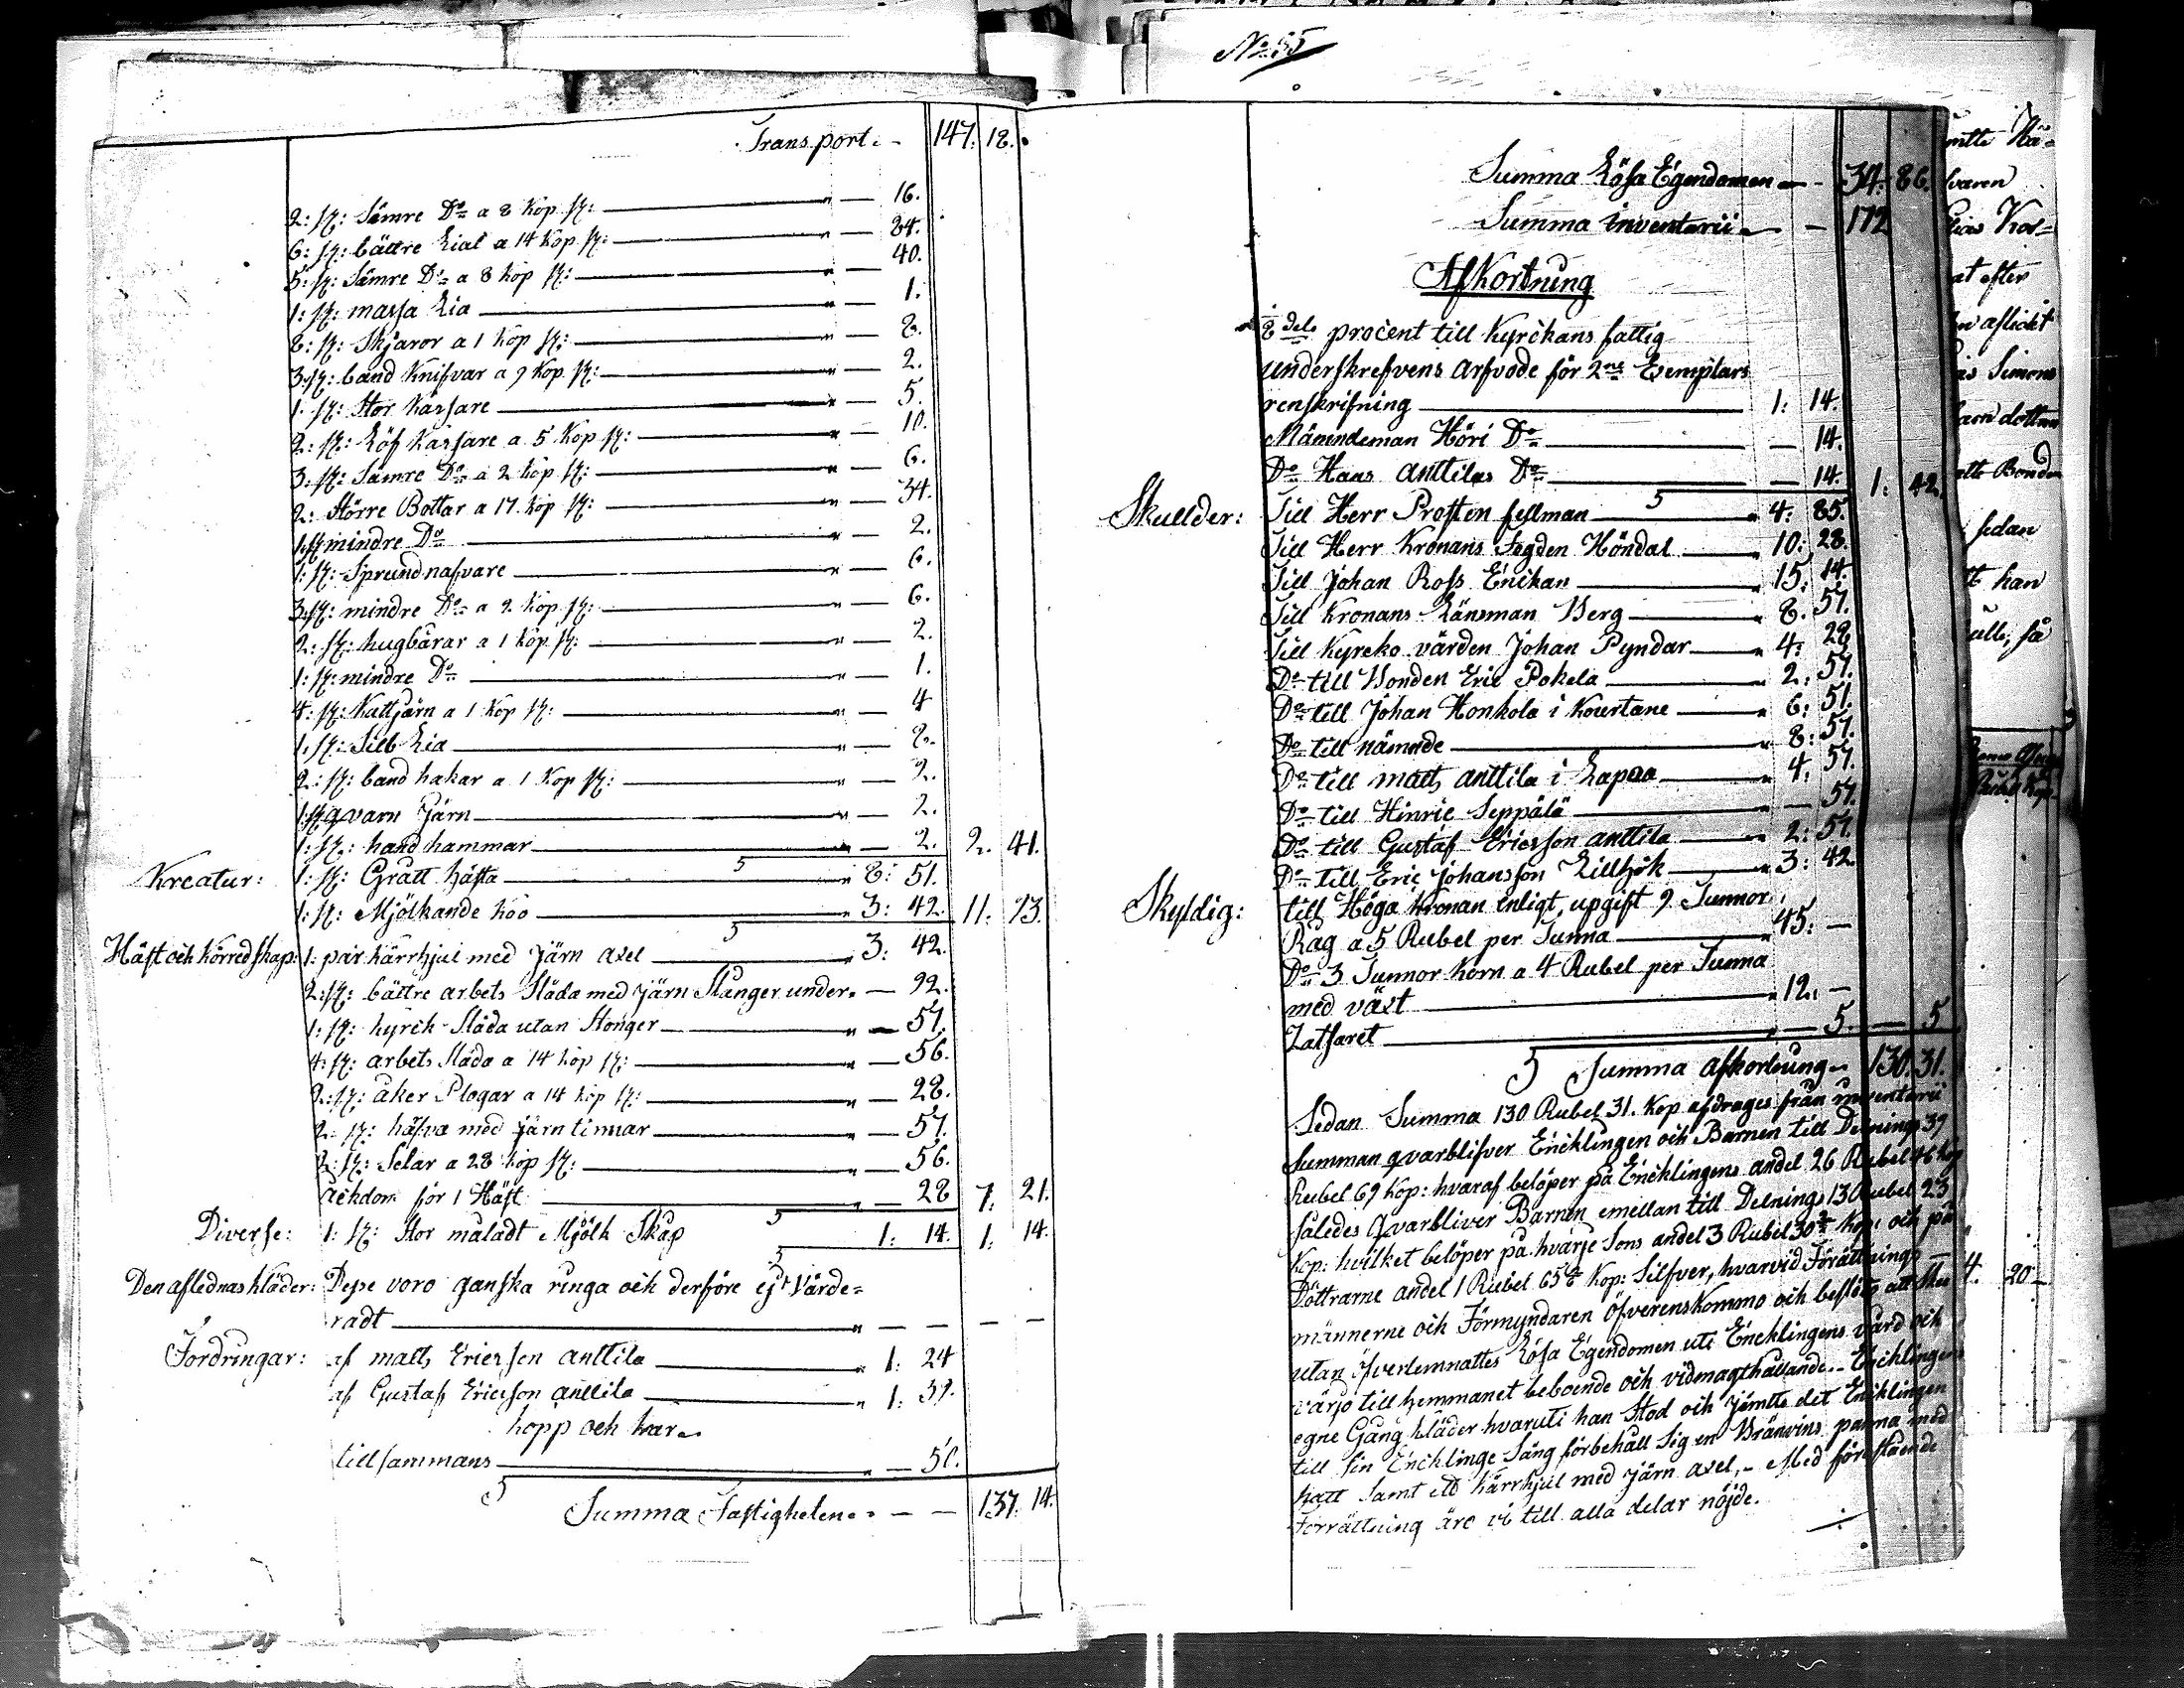 Transport. - 147. 18.
2: st: Sämre Do a 8 Kop st: " — 16.
6: st: bättre Liat a 14 Kop st: " — 84.
5: st: Sämre Do a 8 Kop st: " — 40.
1: st: massa Lia " — 1.
8: st: Skjäror a 1 Kop st: " — 8.
3: st: band Knifvar a 9 Kop st: " — 2.
1: st: Stor Kassare " — 5.
2: st: Löf Kassare a 5 Kop st: " — 10.
3: st: Sämre Do a 2 Kop st: " — 6.
2: Större Bottar a 17 Kop st: " — 34.
1: st mindre Do " — 2.
1: st: Sprundnafvare " — 6.
3: st: mindre Do a 2 Kop st: " — 6.
2: st: hugbärar a 1 Kop st: " — 2.
1: st: mindre Do " — 1.
4: st: Kuttjärn a 1 Kop st: " — 4
1: st: Lia " — 2.
2: st: band hakar a 1 Kop st: " — 2.
1: st qvarn Järn " — 2.
1: st: hand hammar " — 2. 2. 41.
Kreatur: 1: st: Grått hästa " 8: 51.
1: st: Mjölkande Koo " 3: 42. 11. 93.
Häst och Körredskap: 1: par kärrhjul med Järn axel " 3: 42.
2: st: bättre arbets Släda med Järn Stänger under. — 92.
1: st: kyrck Släda utan Stonger " — 57.
4: st: arbets Släda a 14 Kop st: " — 56.
2: st: åker Plogar a 14 Kop st: " — 28.
2: st: häfva med järn tinnar " — 57.
2: st: Selar a 28 Kop st: " — 56.
åckdon för 1 Häst " — 28 7. 21.
Diverse: 1: st: Stor måladt Mjölk Skåp 1: 14. 1: 14.
Den aflednas kläder: Desse voro ganska ringa och derföre ej Värde=
radt " — — — —
Fordringar: af matts Ericsson Anttila " 1: 24
af Gustaf Ericsson Anttila " 1: 39.
hopp och har
tillsammans " — 50.
Summa Fastigheten - — — 137. 14.
No 35
Summa Lösa Egendomen — 34. 86.
Summa inventarii — 172
Afkortning
1/8 dels procent till Kyrckans fattig
underskrefvens arfvode för 2ne Exemplars
renskrifning 1: 14.
Nämndeman Höri Do — 14.
Do Haas Anttilas Do — 14. 1: 42.
Skullder: Till Herr Prosten fellman " 4: 85.
Till Herr Kronans Fogden Höndal " 10: 28.
Till Johan Ross Enckan " 15: 14.
Till Kronans Länsman Berg " 8. 57.
Till Kyrcko värden Johan Pyndar " 4: 28
Do till Bonden Eric Pokela " 2: 57.
Do till Johan Honkola i Kourtane " 6: 51.
Do till nämnde " 8: 57.
Do till matts anttila i Lapoa " 4. 57.
Do till Hinric Seppälä — 57.
Do till Gustaf Ericsson anttila " 2: 57.
Do till Eric Johansson Lillhök " 3: 42.
Skyldig: till Höga Kronan enligt, upgift 9 Tunnor
Råg a 5 Rubel per Tunna " 45: —
Do 3 Tunnor Korn a 4 Rubel per Tunna
med växt " 12. —
" — 5. — 5
Summa afkortning - 130. 31.
Sedan Summa 130 Rubel 31. Kop afdrages från inventarii
Summan qvarblifver Encklingen och Barnen till Delnings 39
Rubel 69 Kop: hvaraf belöper på Encklingens andel 26 Rubel 46 Kop
således Qvarbliver Barnen emellan till Delnings 13 Rubel 23
Kop: hvilket belöper på hvarje Sons andel 3 Rubel 30 Kop: och på
Döttrarne andel 1 Rubel 65 Kop: Silfver, hvarvid Förättnings —
männerne och Förmyndaren Öfverenskommo och beslöto att
utan öfverlemnattes Lösa Egendomen uti Encklingens vård och
värjo till hemmanet beboende och vidmagthållande. - Encklingens
egne Gång kläder hvaruti han Stod och jämte det Encklingen
till sin Encklinge Säng förbehåll Sig en Bränvins panna med
hatt samt ett kärrhjul med järn axel, - Med föreslående
Förrättning äro vi till alla delar nöjde.
4. 20